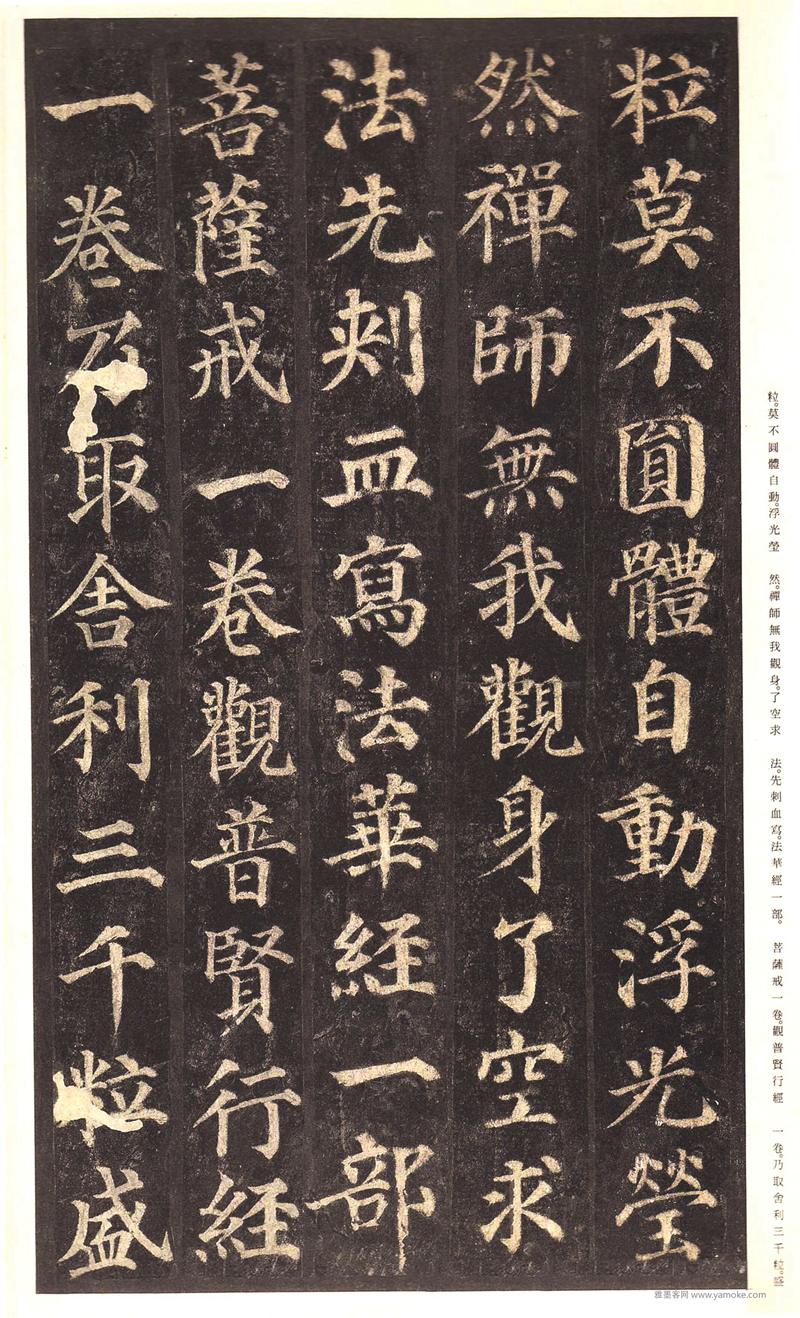 粒莫不圓體自動浮光瑩
然禪師無我觀身了空求
法先刺血寫法華経一部
菩薩戒一卷觀普賢行経
一卷乃取舍利三千粒盛
粒。莫不圓體自動。浮光瑩 然。禪師無我觀身。了空求 法。先刺血寫。法華經一部。 菩薩戒一卷。觀普賢行經 一卷。乃取舍利三千粒。盛
雅墨客网 www.yamoke.com